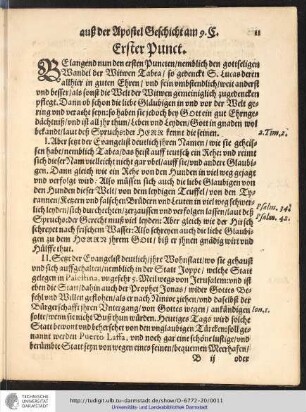 auß der Apostel Geschicht am 9. C.
11
Erster Punct.
BElangend nun den ersten Puncten/nemblich den gottseligen
Wandel der Witwen Tabea/ so gedenckt S. Lucas deren
allhier in guten Ehren/ und sein umbständlich/weit anderst
und besser/als sonst die Welt der Witwen gemeiniglich zugedencken
pflegt. Dann ob schon die liebe Gläubigen in und vor der Welt ge-
ring und veracht seyn: so haben sie jedoch bey Gott ein gut Ehrenge-
dächtnuß/und ist all jhr thun/ leben und Leyden/Gott in gnaden wol
bekandt/laut deß Spruchs: der HErr kennt die seinen.
2. Tim. 2.
I. Aber setzt der Evangelist deutlich jhren Namen/ wie sie geheis-
sen habe/nemblich Tabea/das heist auff teutsch ein Rehe: und reimt
sich dieser Nam vielleicht nicht gar übel/auff sie/und andre Glaubi-
gen. Dann gleich wie ein Rehe von den Hunden in viel weg gejagt
und verfolgt wird: Also müssen sich auch die liebe Glaubigen von
den Hunden dieser Welt/ von den leydigen Teuffel/ von den Ty-
rannen/Ketzern und falschen Brüdern und Leuten in viel weg schwer-
lich leyden/sich durchechten/zerzausen und verfolgen lassen/laut deß
Spruchs: der Gerecht muß viel leyden: Aber gleich wie der Hirsch
Psalm. 34.
schreyet nach frischem Wasser: Also schreyen auch die liebe Glaubi-
Psalm. 42.
gen zu dem HErrn jhrem Gott/ biß er jhnen gnädig würt und
Hülffe thut.
II. Setzt der Evangelist deutlich/jhre Wohnstatt/wo sie gehaust
und sich auffgehalten/nemblich in der Statt Joppe/ welche Statt
gelegen in Palæstina, ungefehr 5. Meilwegs von Jerusalem: und ist
eben die Statt/dahin auch der Prophet Jonas/ wider Gottes Be-
felch und Willen geflohen/als er nach Ninive ziehen/und daselbst der
Bürgerschafft jhren Untergang/von Gottes wegen/ ankündigen
Jon. 1.
solte/wenn sie nicht Buß thun würden. Heutiges Tags wird solche
Statt bewont und beherschet von den unglaubigen Türcken: soll ge-
nannt werden Puerto Laffa, und noch gar ein schöne lustige/und
berümbte Statt seyn von wegen eines feinen/bequemen Meerhafen/
B ij
oder
TECHNISCHE
UNIVERSITÄT
DARMSTADT
http://tudigit.ulb.tu-darmstadt.de/show/O-6772-20/0011
Universitäts- und Landesbibliothek Darmstadt